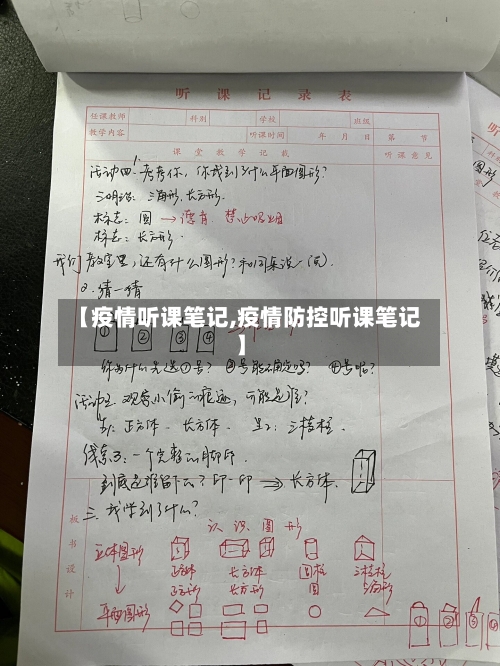 听课记录表
任课教师 科别 学校 班级
教学内容 听课时间 年 月 日 第 节
课堂教学记载 听课意见
活动四:1.考考你,你找到了什么平面图形?
三明治:三角形.长方形.
标志:圆→德育 禁止吸烟
标志:长方形.
我们教室里,还有什么图形?和同桌说一说.
2.猜一猜
【疫情听课笔记,疫情防控听课笔记
】
① ② ③ ④
你为什么先选①号? ③号能不确定吗? ④号呢?
活动五 观察小偷的痕迹,可能是谁?
正方体. 长方体. 三棱柱.
线索3:一个完整的脚印.
到底是谁留下的?印一印→长方体.
三.我学到了什么?
板书设计
认识图形
立体图形
正方体 长方体 圆柱 三棱柱
正方形 长方形 圆 三角形
平面图形
① ② ③ ④